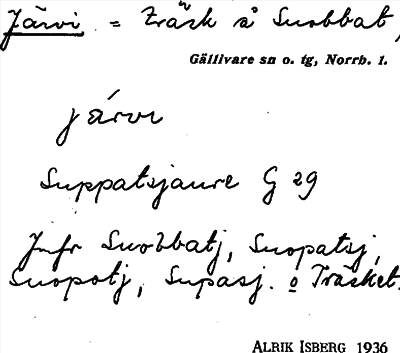 Järvi = Träsk å Snobbat,
Gällivare sn o. tg, Norrb. l.
járvi
Suppatsjaure G 29
Jmfr Snobbatj, Snopatsj,
Snopotj, Supasj. o Träsket.
ALRIK ISBERG 1936